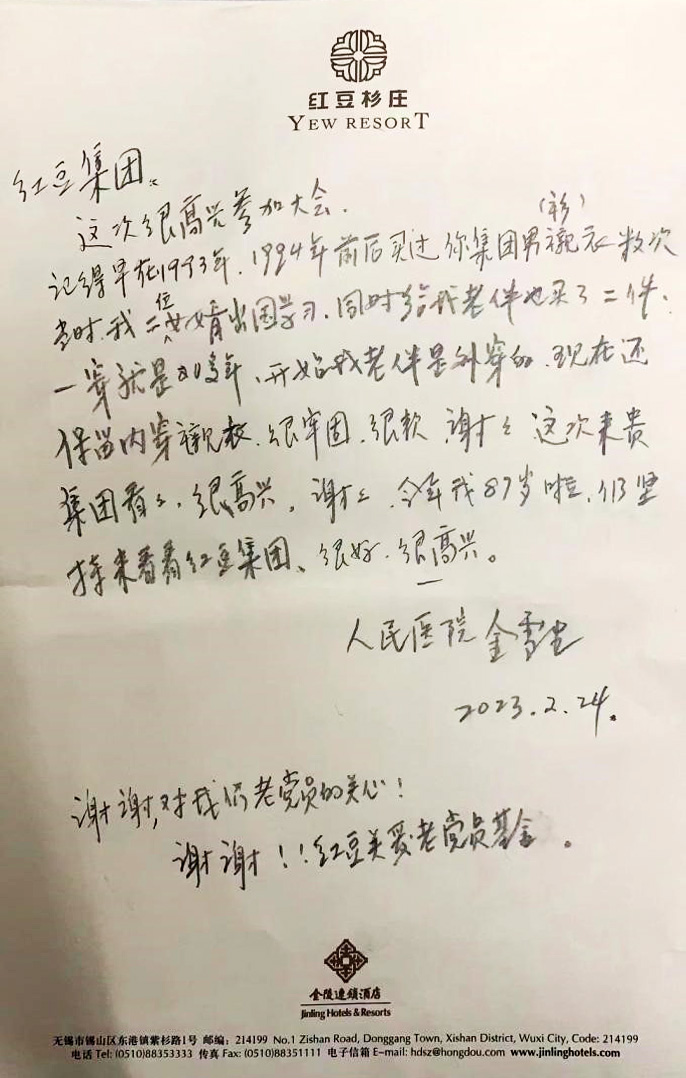 红豆杉庄
YEW RESORT
红豆集团:
这次很高兴参加大会.
(衫)
记得早在1993年.1994年前后买过你集团男衬衣数次
当时.我二位女婿出国学习.同时给我老伴也买了二件.
一穿就是20多年.开始我老伴是外穿的.现在还
保留内穿衬衣.很牢固.很软 谢谢 这次来贵
集团看看.很高兴.谢谢.今年我87岁啦.仍坚
持来看看红豆集团、很好.很高兴。
人民医院 金雪
2023.2.24.
谢谢,对我们老党员的关心!
谢谢!!红豆关爱老党员基金。
金陵连锁酒店
Jinling Hotels & Resorts
无锡市锡山区东港镇紫杉路1号 邮编: 214199 No.1 Zishan Road, Donggang Town, Xishan District, Wuxi City, Code: 214199
电话 Tel: (0510)88353333 传真 Fax: (0510)88351111 电子信箱 E-mail: hdsz@hongdou.com www.jinlinghotels.com